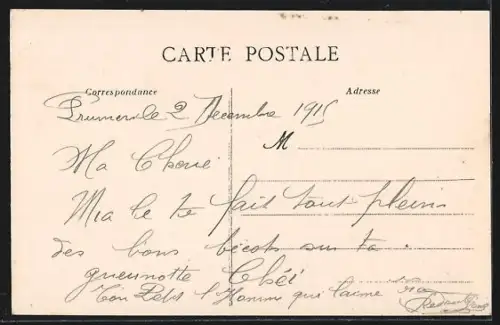 CARTE POSTALE
Correspondance
Adresse
le 2 Decembre 1915
M
Ma Cherie
te fait tout plein
des bons bécots sur ta
gueunotte Chéi
Ton Petit Homme qui t'aime